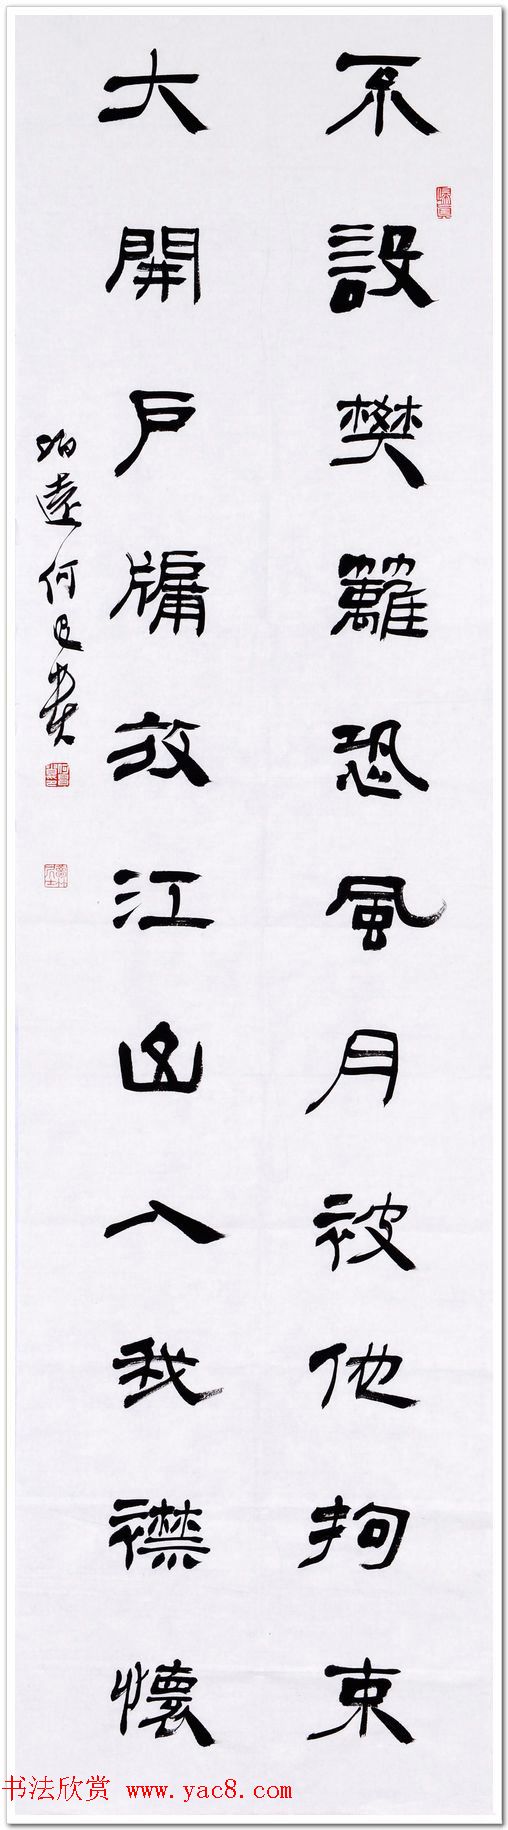 不設樊籬恐風月被他拘束
大開戶牖放江山入我襟懷
书法欣赏 www.yac8.com